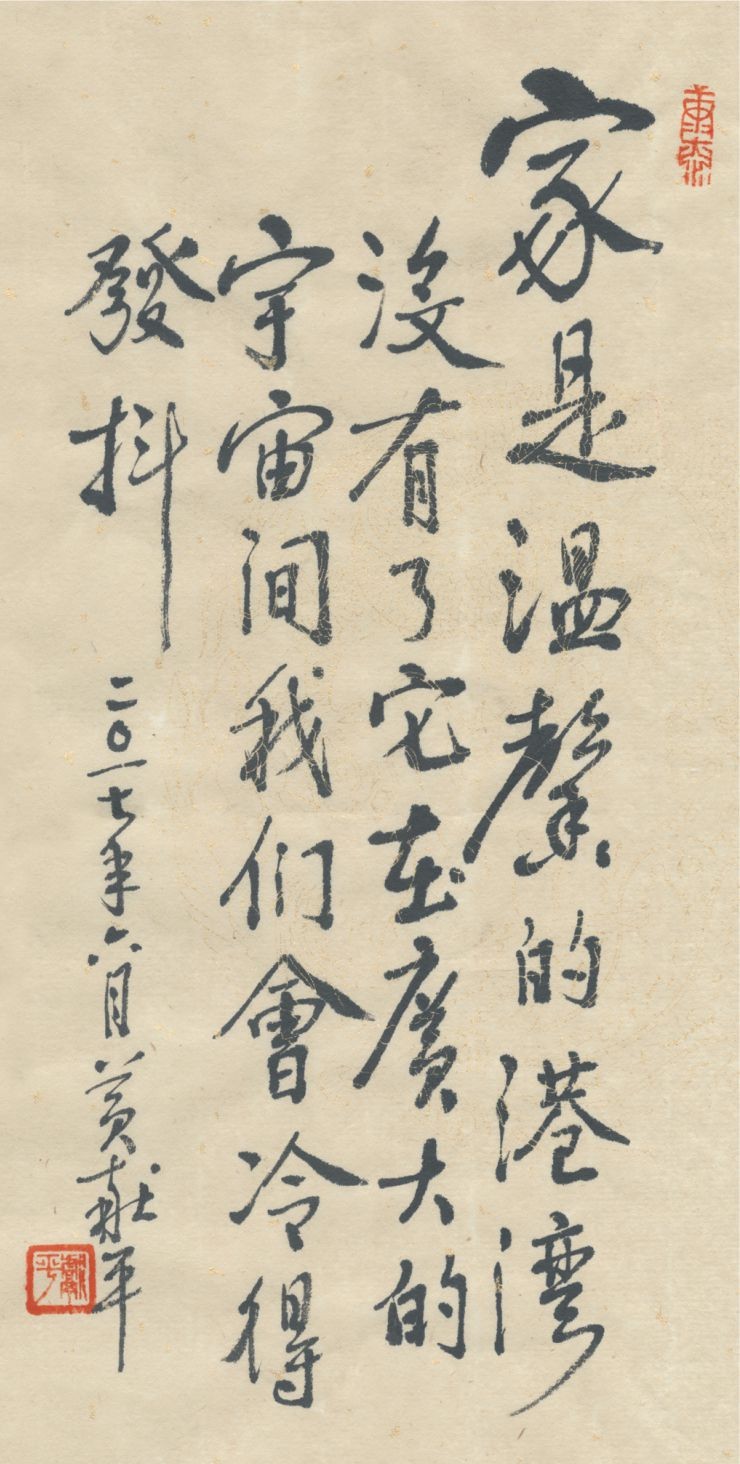 家是温馨的港湾
没有了它在廣大的
宇宙间我们會冷得
發抖
二〇一七年六月黄献平
獻平